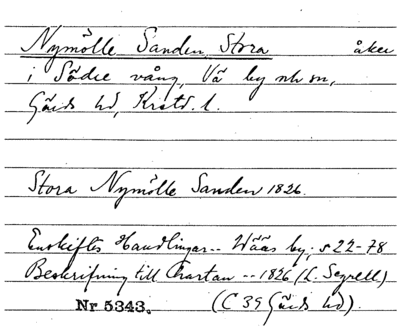 Nymölle Sanden, Stora åker
i Södre vång, Vä by och sn,
Gärds hd, Krstd. l.
Stora Nymölle Sanden 1826.
Enskiftes Handlingar -- Wääs by; s 22-78
Beskrifning till Chartan -- 1826 (C. Segrell)
Nr 5343. (C 39 Gärds hd).